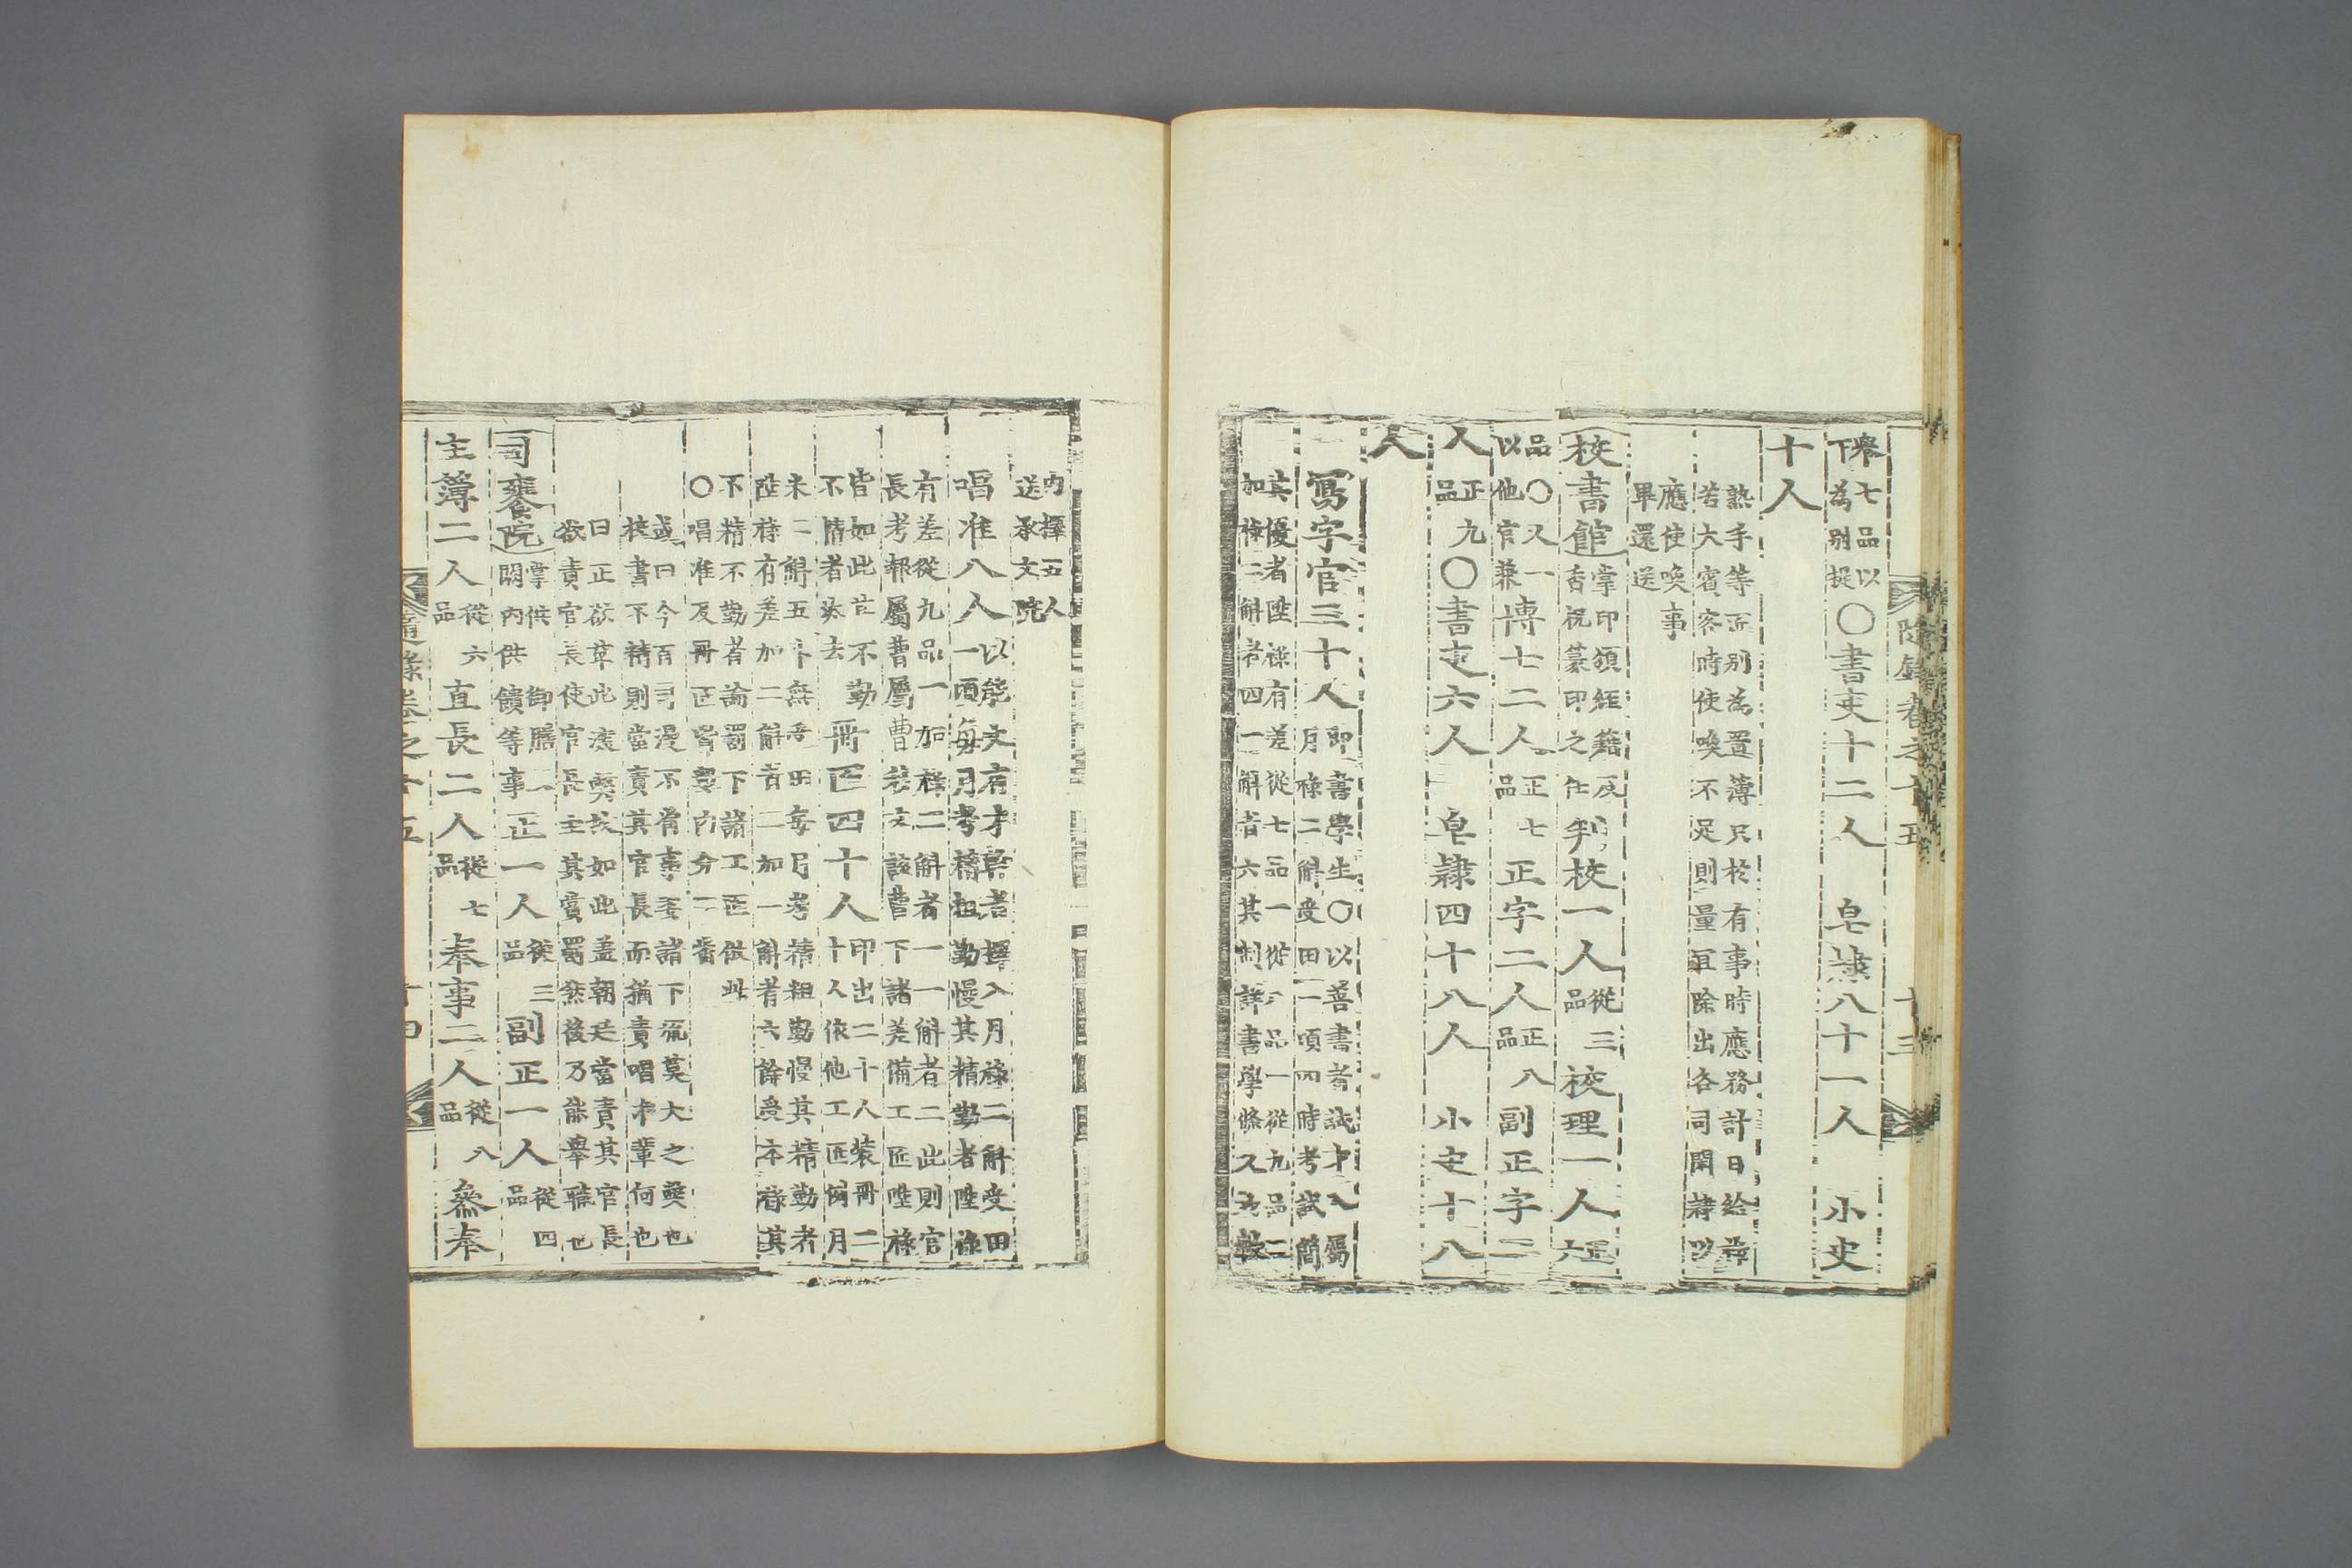 隨錄卷之十五 十三
舉七品以下為別提○書吏十二人 皂隷八十一人 小史
十人
熟手等匠別為置簿只於有事時應務計日給料
若大賓客時使喚不足則量宜除出各司闕隷以
應使喚事
畢還送
校書館掌印頒經籍及香祝篆印之任判校一人從三品校理一人正六
品○又一以他官兼博士二人正七品正字二人正八品副正字二
人正九品○書吏六人 皂隷四十八人 小史十八
人
寫字官三十人即書學生○以善書者試才入屬
月祿二斛受田一頃四時考試簡
其優者陞祿有差從七品一從八品一從九品二
加祿二斛者四一斛者六其制詳書學條又為敎
內擇五人
送承文院
唱准八人以能文有才幹者擇入月祿二斛受田
一頃每月考精粗勤慢其精勤者陞祿
有差從九品一加祿二斛者一一斛者二此則官
長考報屬曹屬曹
移文該曹下諸差備工匠陞祿
皆如此其不勤
不精者汰去冊匠四十人印出二十八人裝冊二
十人依他工匠例月
未二斛五斗無受田每月考精粗勤慢其精勤者
陞祿有差加二斛者二加一斛者六餘受本祿其
不精不勤者論罰下諸工匠倣此
○唱准及冊匠皆要內分二番
或曰今百司漫不省事委諸下流莫大之弊也
校書不精則當責其官長而猶責唱准輩何也
曰正欲革此痼弊故如此盖朝廷當責其官長
欲責官長使官長主其賞罰然後乃能舉職也
司饔院掌供 御膳及闕內供饋等事正一人從三品副正一人從四品
主簿二人從六品直長二人從七品奉事二人從八品參奉
隨錄卷之十五 十四